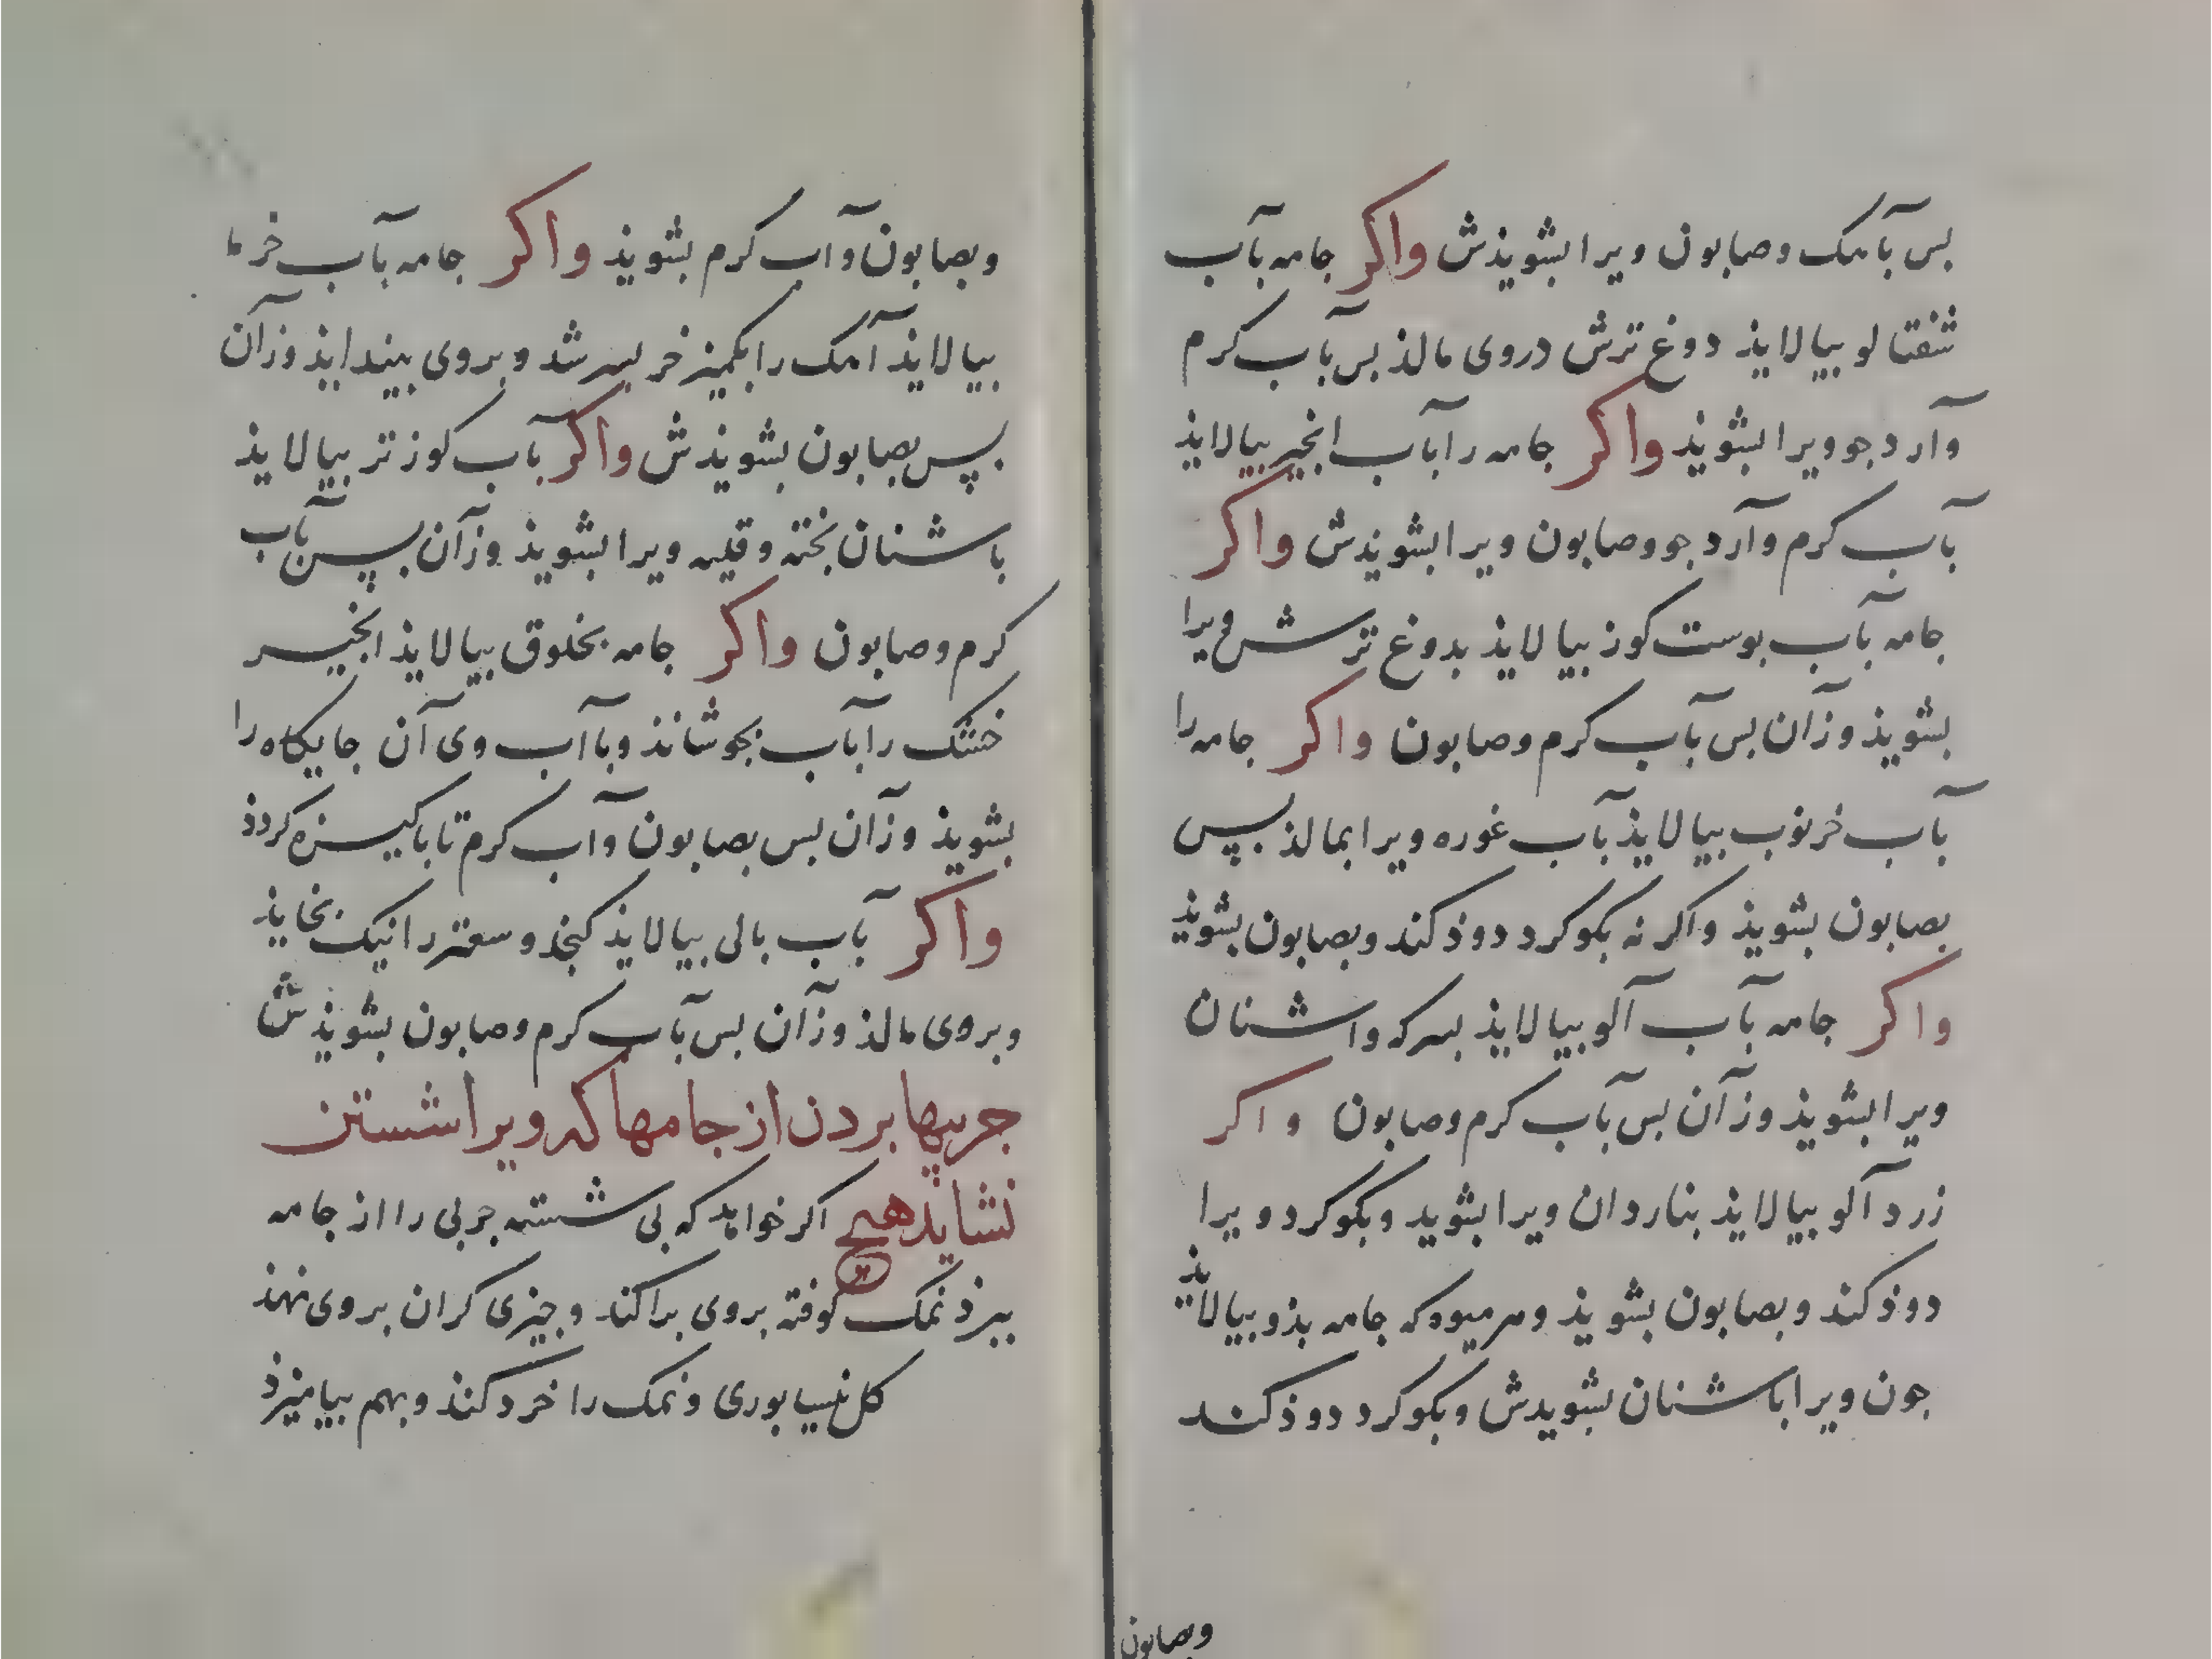 بس بآمک وصابون ویرا بشویذش واکر جامه بآب
شفتالو بیالایذ دوغ ترش دروی مالذ بس بآب کرم
وآرد جو ویرا بشویذ واکر جامه را بآب انجیر بیالایذ
بآب کرم وآرد جو وصابون ویرا بشویذش واکر
جامه بآب بوست کوز بیالایذ بدوغ ترش ویرا
بشویذ وزآن بس بآب کرم وصابون واکر جامه را
بآب خرنوب بیالایذ بآب غوره ویرا بمالذ بپس
بصابون بشویذ واکر نه بکوکرد دوذ کند وبصابون بشویذ
واکر جامه بآب آلو بیالایذ بسرکه واشنان
ویرا بشویذ وزآن بس بآب کرم وصابون واکر
زردآلو بیالایذ بناردان ویرا بشوید وبکوکرد ویرا
دوذ کند وبصابون بشویذ وهر میوه که جامه بذو بیالایذ
جون ویرا باشنان بشویدش وبکوکرد دوذ کند
وبصابون
وبصابون وآب کرم بشویذ واکر جامه بآب خرما
بیالایذ آمک را بکمیز خر بسرشد وبروی بینداید وزآن
بپس بصابون بشویذش واکر بآب کوز تر بیالایذ
باشنان بخته وقلیه ویرا بشویذ وزآن بپس بآب
کرم وصابون واکر جامه بخلوق بیالایذ انجیر
خشک را بآب بجوشانذ وبا آب وی آن جایکاه را
بشویذ وزآن بس بصابون وآب کرم تا باکیزه کردذ
واکر بآب بالی بیالایذ کنجد وسعتر را نیک بخایذ
وبروی مالذ وزآن بس بآب کرم وصابون بشویذش
جربیها بردن از جامها که ویرا شستن
نشاید هیچ اکر خواهد که بی شستنه جربی را از جامه
ببرذ نمک کوفته بروی براکند وجیزی کران بروی نهذ
کل نیسابوری ونمک را خرد کنذ وبهم بیامیزذ